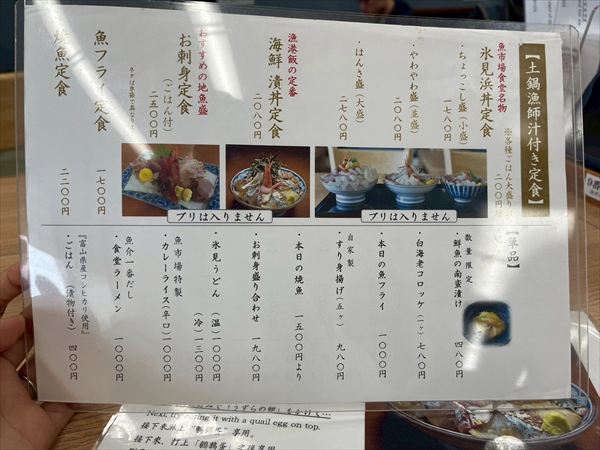 【土鍋漁師汁付き定食】
※各種ごはん大盛り
二〇〇円増
魚市場食堂名物
氷見浜丼定食
・ちょっこし盛(小盛)
一四八〇円
・やわやわ盛(並盛)
二〇八〇円
・はんさ盛(大盛)
二七八〇円
漁港飯の定番
海鮮漬丼定食
二〇八〇円
おすすめの地魚盛
お刺身定食
(ごはん付)
二五〇〇円
ネタは季節で異なります
魚フライ定食
一七〇〇円
焼魚定食
二二〇〇円
ブリは入りません
ブリは入りません
【単品】
数量限定
・鮮魚の南蛮漬け
四八〇円
・白海老コロッケ(二ヶ)
七八〇円
・本日の魚フライ
一〇〇〇円
自家製
・すり身揚げ(五ヶ)
九八〇円
・本日の焼魚
一五〇〇円より
・お刺身盛り合わせ
一九八〇円
・氷見うどん
(温)一〇〇〇円
(冷)一三〇〇円
魚市場特製
・カレーライス(辛口)
一〇〇〇円
魚介一番だし
・食堂ラーメン
一〇〇〇円
『富山県産コシヒカリ使用』
・ごはん(漬物付き)
四〇〇円
「うずらの卵」をかけて…
Next, try eating it with a quail egg on top.
享用。
接下來、打上「鵪鶉蛋」之後享用